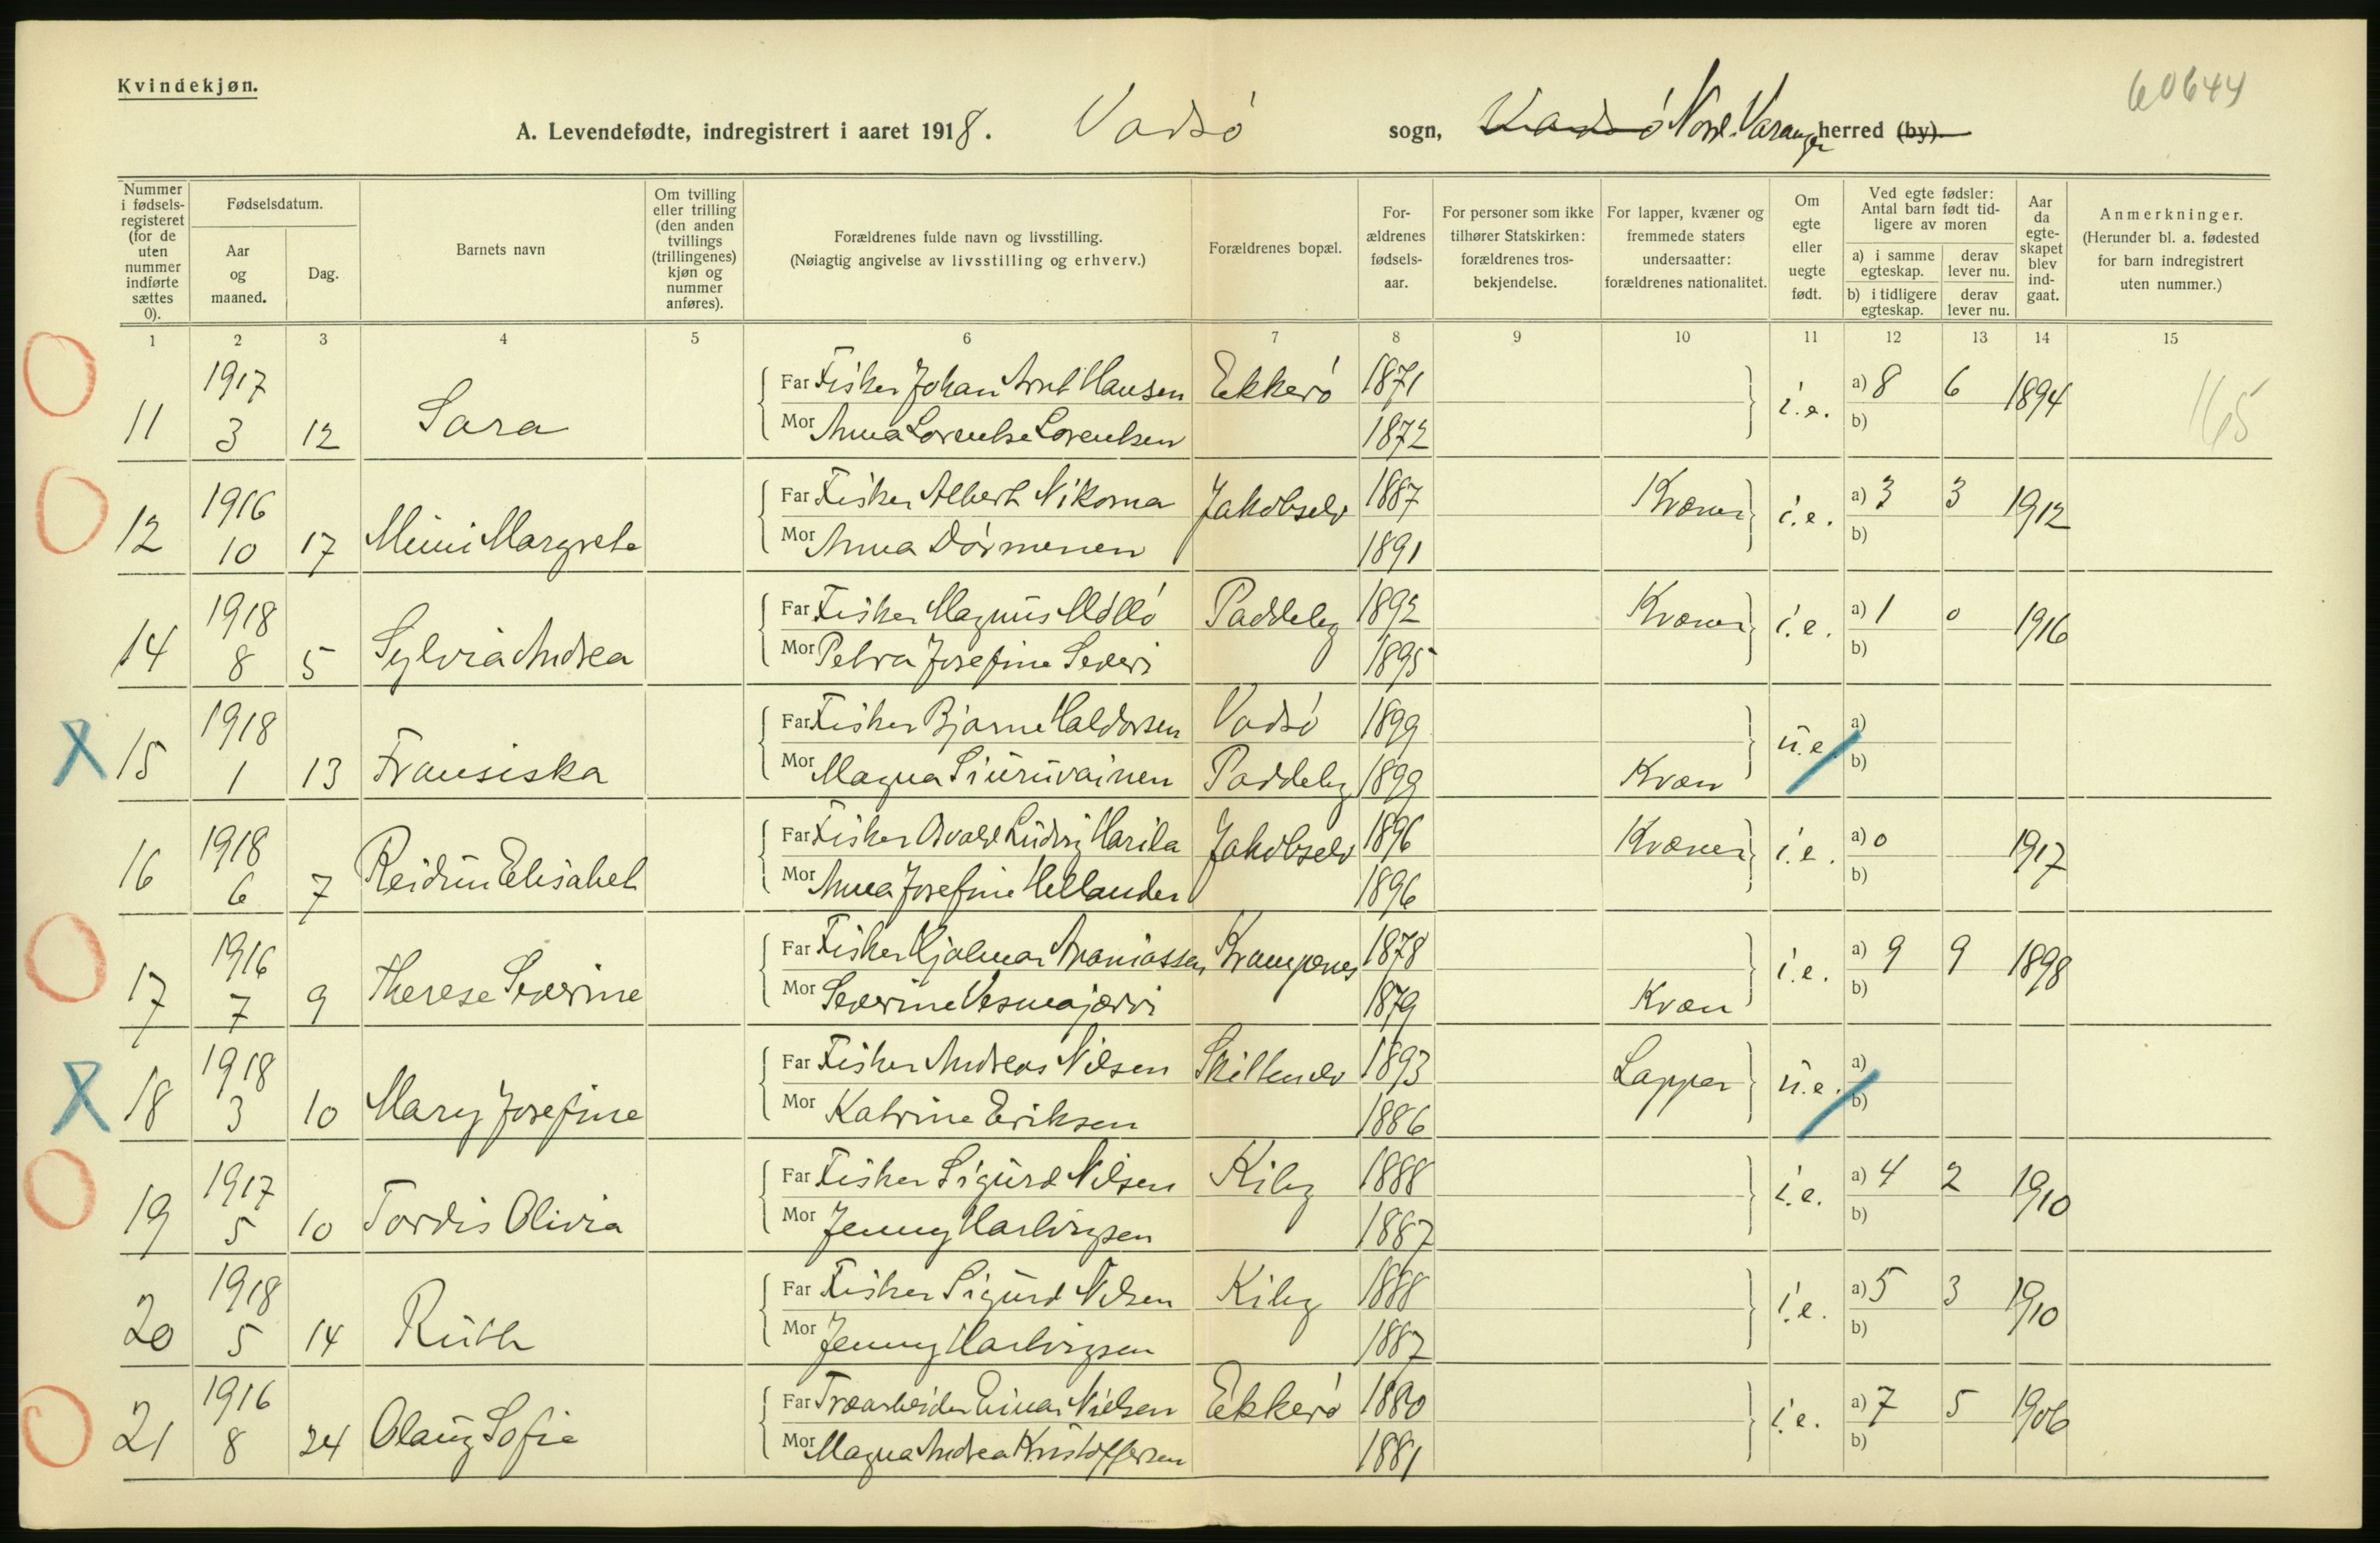 Kvindekjøn.
60644
A. Levendefødte, indregistrert i aaret 1918. Vadsö sogn, Vadsö Nord-Varanger herred (by).
Nummer i fødselsregisteret (for de uten nummer indførte sættes 0).
Fødselsdatum.
Aar og maaned.
Dag.
Barnets navn
Om tvilling eller trilling (den anden tvillings (trillingenes) kjøn og nummer anføres).
Forældrenes fulde navn og livsstilling.
(Nøiagtig angivelse av livsstilling og erhverv.)
Forældrenes bopæl.
Forældrenes fødselsaar.
For personer som ikke tilhører Statskirken: forældrenes trosbekjendelse.
For lapper, kvæner og fremmede staters undersaatter: forældrenes nationalitet.
Om egte eller uegte født.
Ved egte fødsler: Antal barn født tidligere av moren
a) i samme egteskap.
derav lever nu.
b) i tidligere egteskap.
derav lever nu.
Aar da egteskapet blev indgaat.
Anmerkninger.
(Herunder bl. a. fødested for barn indregistrert uten nummer.)
1 2 3 4 5 6 7 8 9 10 11 12 13 14 15
1917 Far Fisker Johan Arnt Hansen Ekkerö 1871 a) 8 6
11 3 12 Sara i.e. 1894 165
Mor Anna Lorentse Lorentsen 1872 b)
1916 Far Fisker Albert Nikoma Jakobselv 1887 Kvæner a) 3 3
12 10 17 Mimi Margrete i.e. 1912
Mor Anna Dörmenen 1891 b)
1918 Far Fisker Magnus Möllö Paddeby 1892 Kvæner a) 1 0
14 8 5 Sylvia Andrea i.e. 1916
Mor Petra Josefine Severi 1895 b)
1918 Far Fisker Bjarne Haldorsen Vadsö 1899 a)
X 15 1 13 Fransiska u.e.
Mor Magna Siuruvainen Paddeby 1899 Kvæn b)
1918 Far Fisker Osvald Ludvig Harila Jakobselv 1896 Kvæner a) 0
16 6 7 Reidun Elisabet i.e. 1917
Mor Anna Josefine Hellander 1896 b)
1916 Far Fisker Hjalmar Ananiassen Krampenes 1878 a) 9 9
17 7 9 Therese Severine i.e. 1898
Mor Severine Vesmajærvi 1879 Kvæn b)
1918 Far Fisker Andreas Nilsen Skittenelv 1893 Lapper a)
X 18 3 10 Mary Josefine u.e.
Mor Katrine Eriksen 1886 b)
1917 Far Fisker Sigurd Nilsen Kiby 1888 a) 4 2
19 5 10 Tordis Olivia i.e. 1910
Mor Jenny Hartvigsen 1887 b)
1918 Far Fisker Sigurd Nilsen Kiby 1888 a) 5 3
20 5 14 Ruth i.e. 1910
Mor Jenny Hartvigsen 1887 b)
1916 Far Træarbeider Einar Nielsen Ekkerö 1880 a) 7 5
21 8 24 Olaug Sofie i.e. 1906
Mor Magna Andrea Kristoffersen 1881 b)